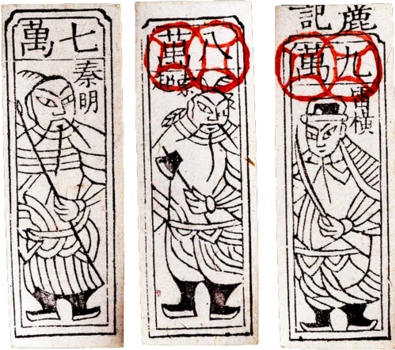 七萬
秦明
八萬
鹿記
九萬
雷橫